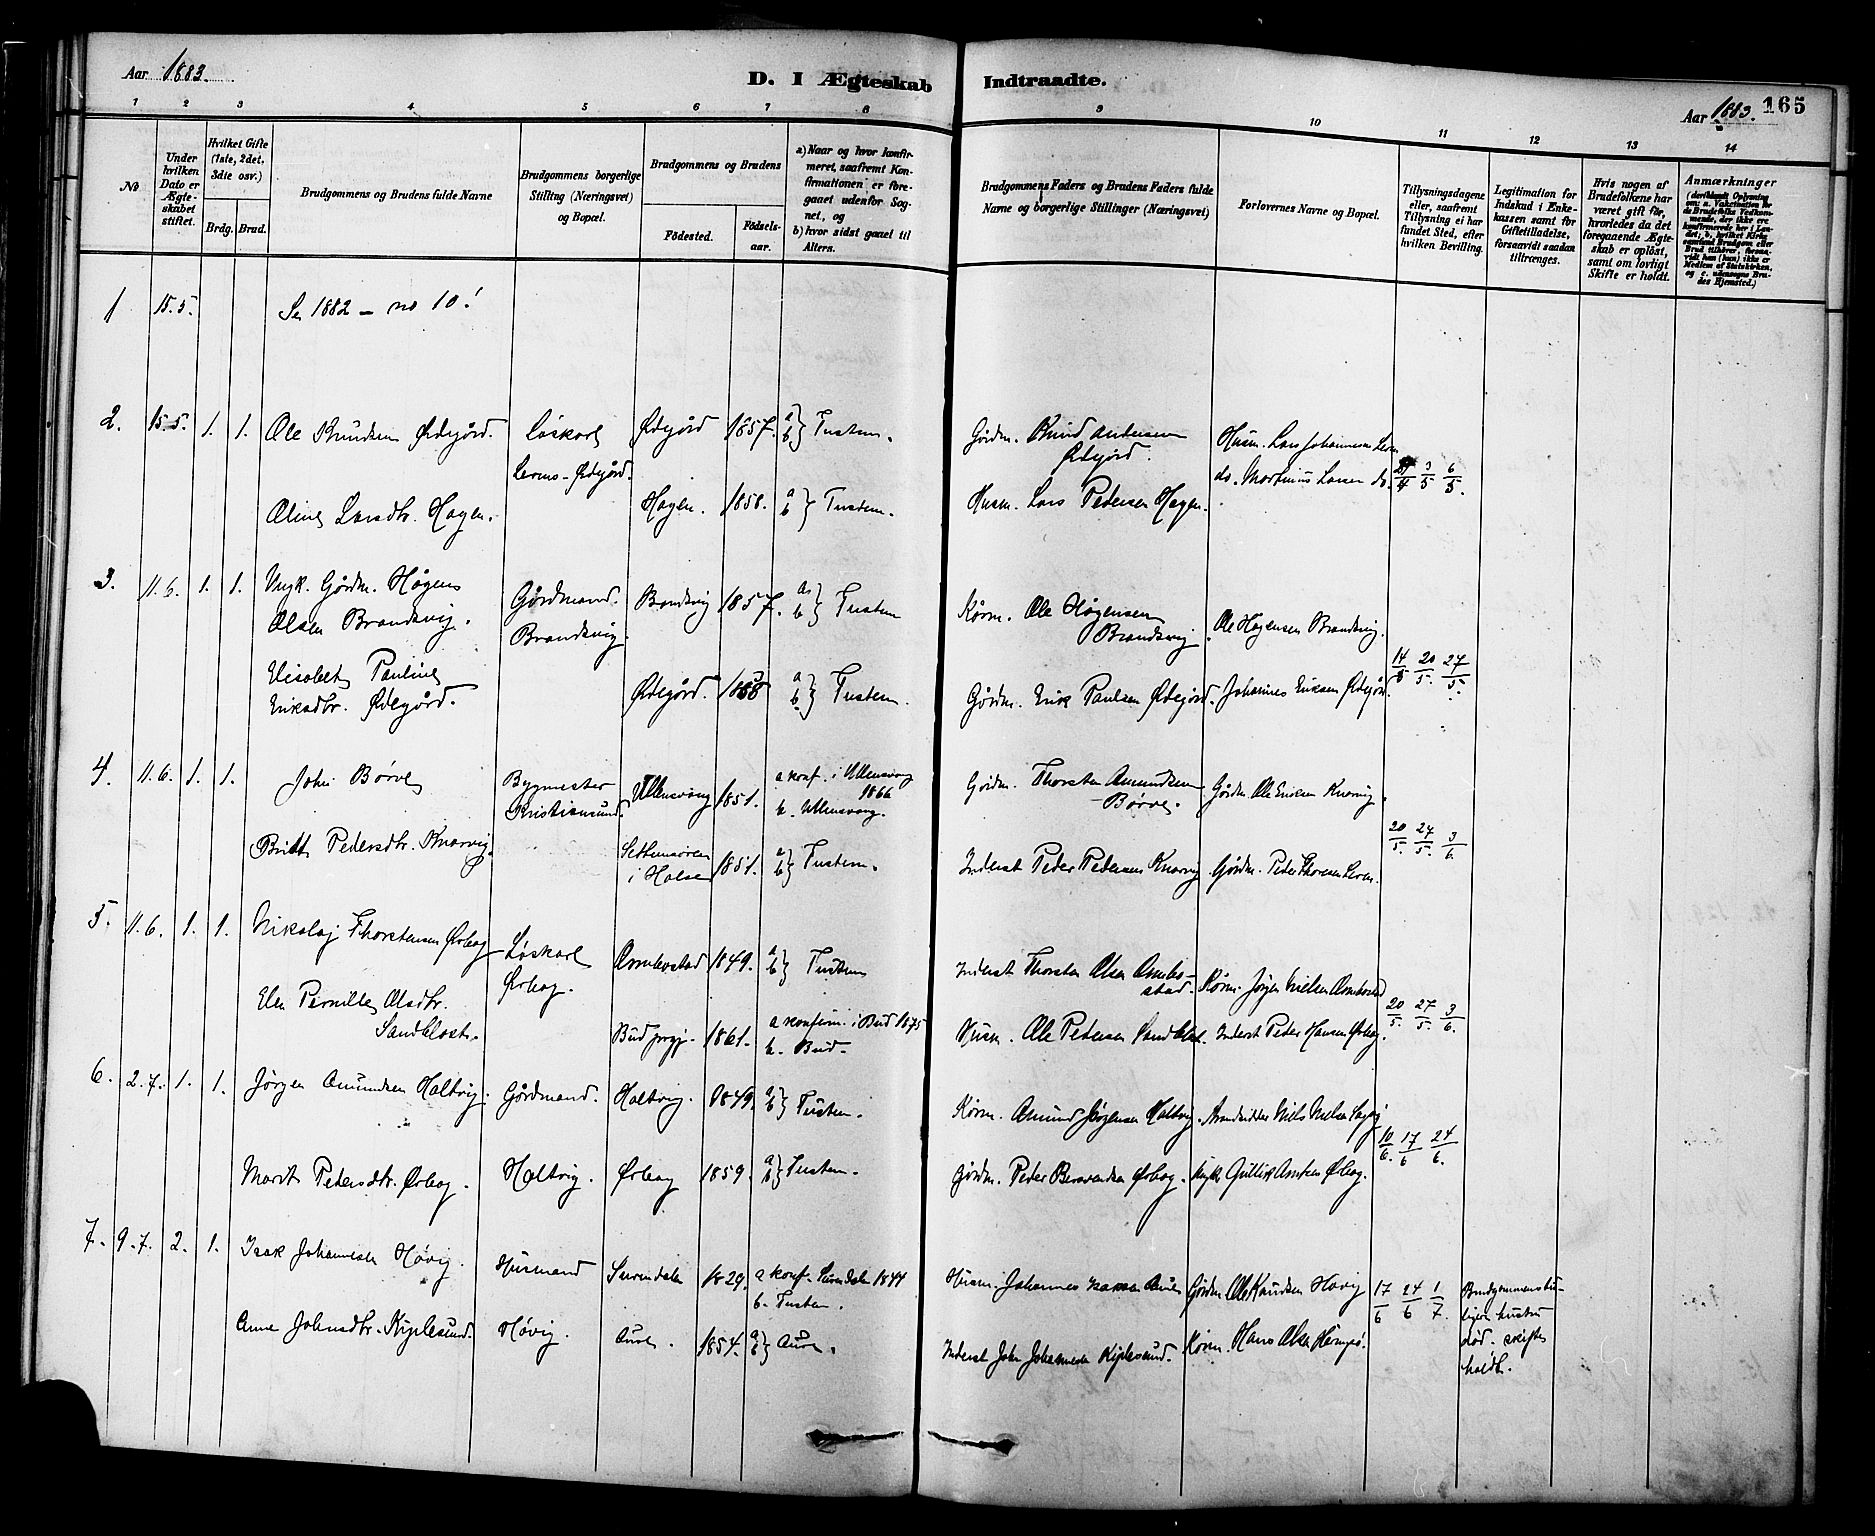 Aar 1883.
D. I Ægteskab Indtraadte.
Aar 1883. 165
1 2 3 4 5 6 7 8 9 10 11 12 13 14
No
Under hvilken Dato er Ægteskabet stiftet.
Hvilket Gifte (1ste, 2det, 3die osv.)
Brdg. Brud.
Brudgommens og Brudens fulde Navne
Brudgommens borgerlige Stilling (Næringsvei) og Bopæl.
Brudgommens og Brudens
Fødested. Fødselsaar.
a) Naar og hvor konfirmeret, saafremt Konfirmationen er foregaaet udenfor Sognet, og
b) hvor sidst gaaet til Alters.
Brudgommens Faders og Brudens Faders fulde Navne og borgerlige Stillinger (Næringsvei)
Forlovernes Navne og Bopæl.
Tillysningsdagene eller, saafremt Tillysning ei har fundet Sted, efter hvilken Bevilling.
Legitimation for Indskud i Enkekassen samt for Giftetilladelse, forsaavidt saadan tiltrænges.
Hvis nogen af Brudefolkene har været gift før, hvorledes da det foregaaende Ægteskab er opløst, samt om lovligt Skifte er holdt.
Anmærkninger
1 15.5. Se 1882 – no 10!
2. 15.5. 1. 1. Ole Knudsen Ødegård. Løskarl Ødegård 1857. a b } Tustern. Gårdm. Knud Andersen Husm. Lars Johannesen Lerm
Lerms-Ødegård. Ødegård. do. Martinus Larsen do. 29/4 3/5 6/5.
Oline Larsdtr. Hagen. Hagen. 1858. a b } Tustern. Husm. Lars Pedersen Hagen.
3. 11.6. 1. 1. Ungk. Gårdm. Høgen Gårdmand. Brandsvig 1857. a b } Tustern Kårm. Ole Høgensen
Olsen Brandsvig. Brandsvig. Brandsvig. Ole Høgensen Brandsvig.
Elisabet Pauline Ødegård. 1858 a b } Tustern. Gårdm. Erik Paulsen Ødegård. Johannes Eriksen Ødegård. 14/5 20/5. 27/5.
Eriksdtr. Ødegård.
4. 11.6. 1. 1. John Børve Bygmester Ullensvang 1851. a konf. i Ullensvang 1866 Gårdm. Thorsten Amundsen Gårdm. Ole Eriksen Knarvig.
Kristiansund. b. Ullensvang. Børve.
Britt Pedersdtr. Knarvig. i Halse 1851. a b } Tustern. Inderst Peder Pedersen Knarvig Gårdm. Peder Thoresen Lerm. 20/5. 27/5. 3/6.
5. 11.6. 1. 1. Nikolaj Thorstensen Ørbog Løskarl 1849. a b } Tustern Inderst Thorsten Olsen Kårm. Jørgen Nielsen
Ørbog.
Elen Pernille Olsdtr. Bud prgj. 1861. a konfirm. i Bud 1875 Husm. Ole Pedersen Sandblåst. Inderst Peder Hansen Ørbog. 20/5. 27/5. 3/6.
Sandblåst. b. Bud.
6. 2.7. 1. 1. Jørgen Amundsen Haltvig. Gårdmand. Haltvig. 1849. a b } Tustern. Kårm. Amund Jørgensen Haltvig. Niels Nielsen
Marit Pedersdtr. Ørbog. Haltvig. Ørbog 1859. a b } Tustern. Gårdm. Peder Ørbog. Ungk. Ørbog. 10/6. 17/6 24/6.
7. 9.7. 2. 1. Isak Johannesen Høvig. Husmand Surendalen 1829. a konf. Surendalen 1844 Husm. Johannes Gårdm. Ole Knudsen Høvig 17/6 24/6 1/7. Brudgommens tidligere hustru
b. Tustern. død. skifte
Anne Johnsdtr. Kiplesund. Høvig. Aure. 1854. a b } Aure. Inderst John Johannesen Kiplesund. Kårm. Hans Olsen holdt.